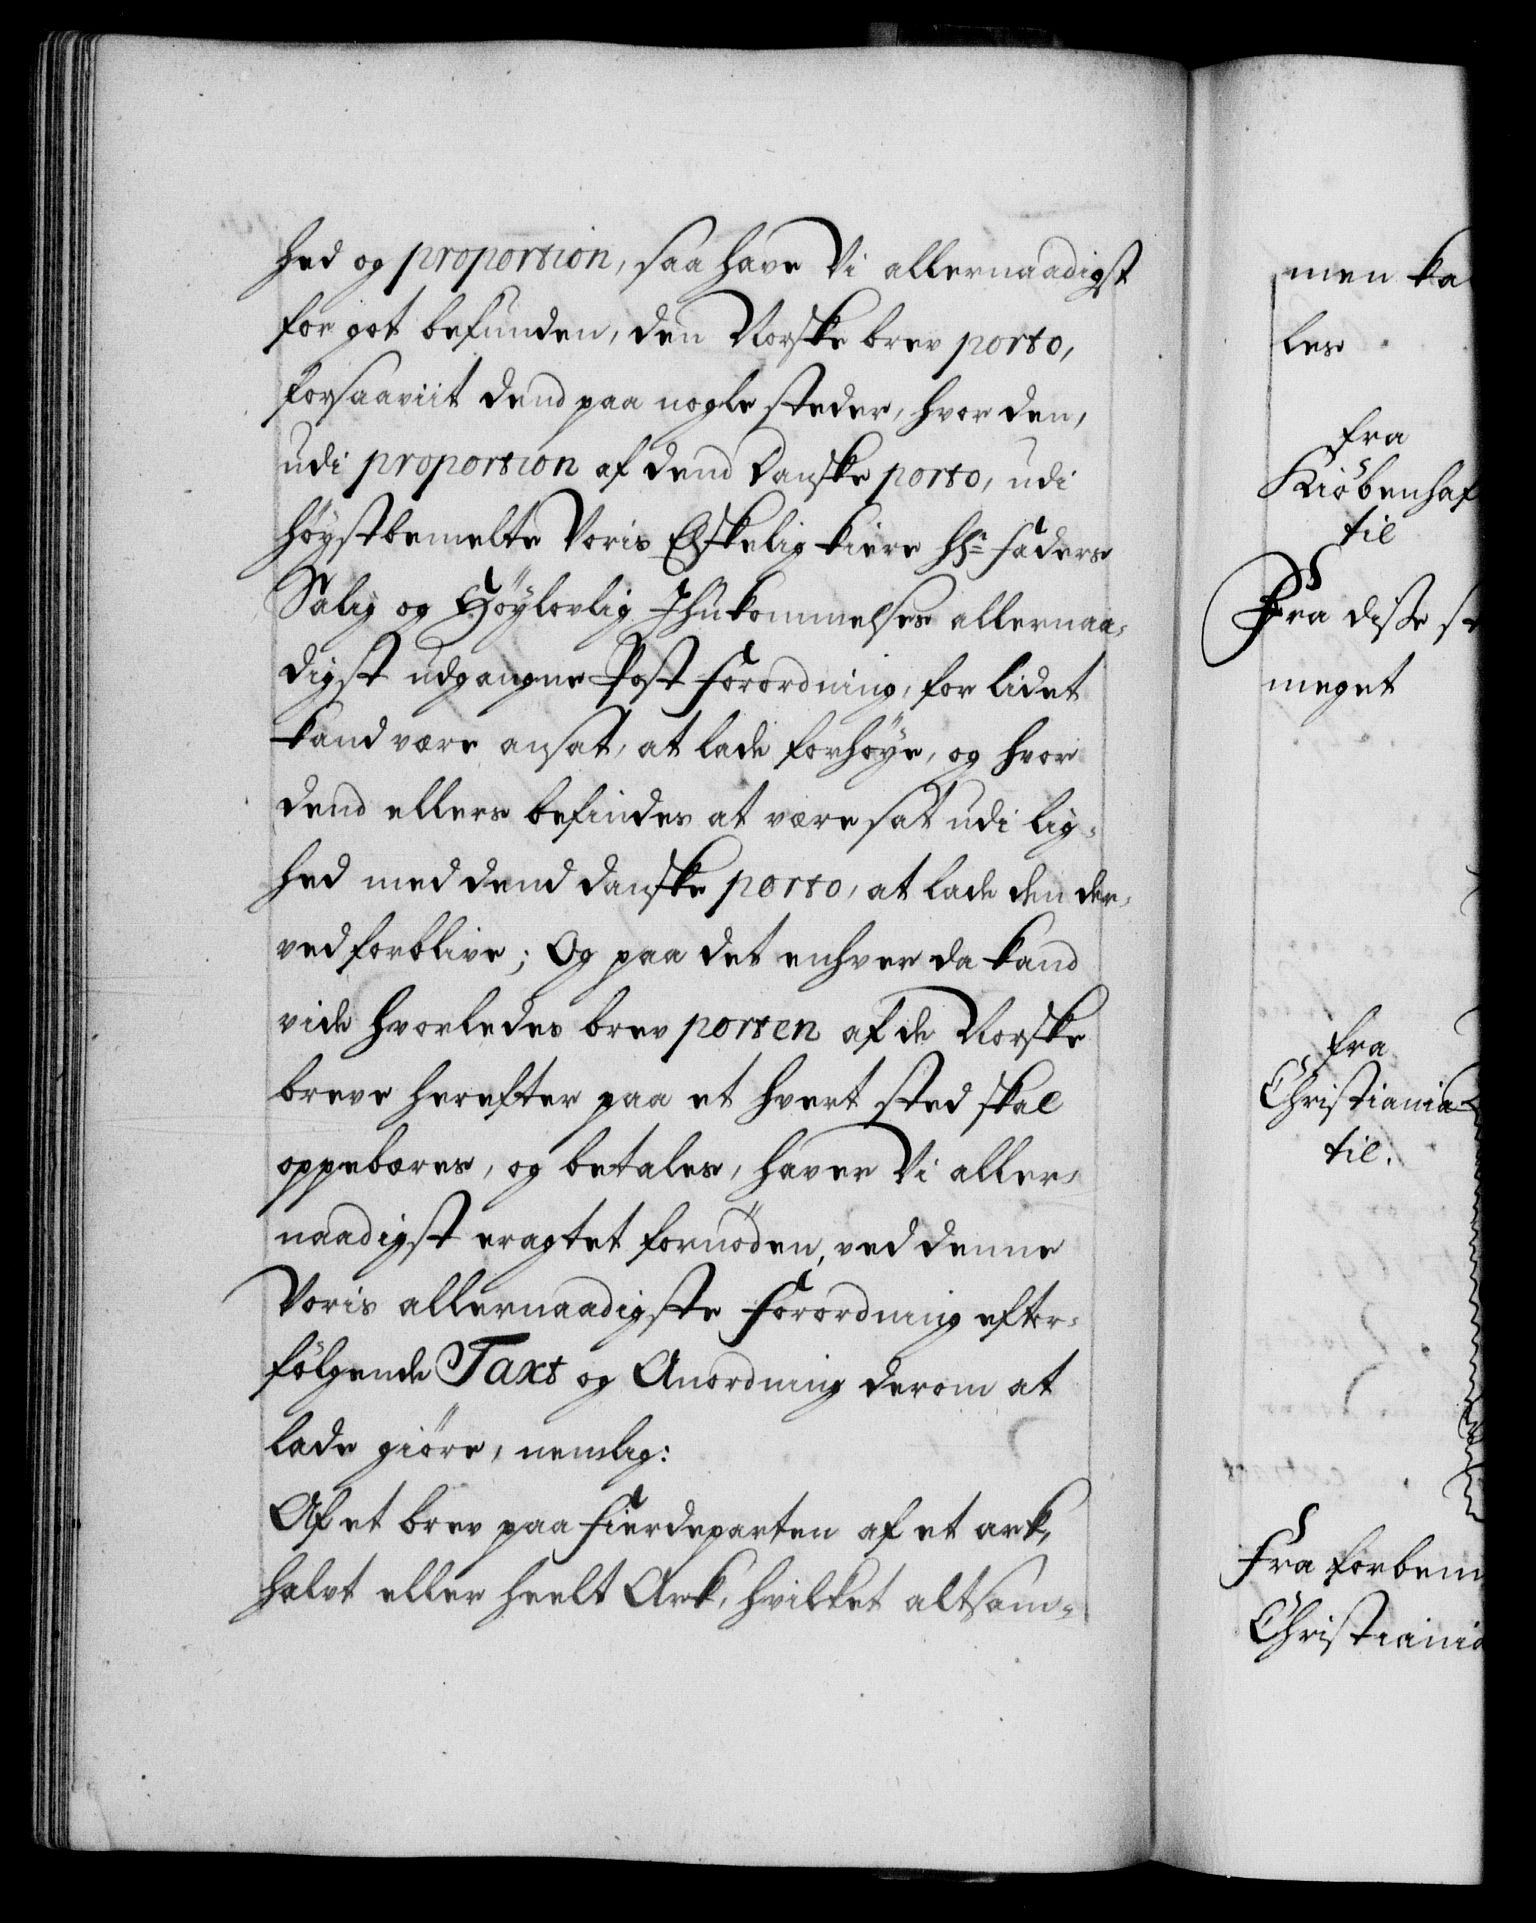 hed og proportion, saa have Vi allernaadigst
for got befunden, den Norske brev porto,
forsaaviit dend paa nogle steder, hvor den,
udi proportion af dend Danske porto, udi
høystbemelte Voris Elskelig kiere Hr: Faders
Salig og Høylovlig Ihukommelses allernaa-
digst udgangne Post Forordning, for lidet
kand være ansat, at lade forhøye, og hvor
dend ellers befindes at være sat udi lig-
hed med dend danske porto, at lade den der-
ved forblive; Og paa det enhver da kand
vide hvorledes brev porten af de Norske
breve herefter paa et hvert sted skal
oppebæres, og betales, haver Vi aller-
naadigst eragtet fornöden, ved denne
Voris allernaadigste Forordning efter-
følgende Taxt og Anordning derom at
lade giöre, nemlig:
Af et brev paa Fierdeparten af et ark,
halvt eller heelt Ark, hvilket altsam-
men ka
les
fra
Kiøbenhaf
til
Fra disse st
meget
fra
Christiania
til.
Fra forbem
Christiania